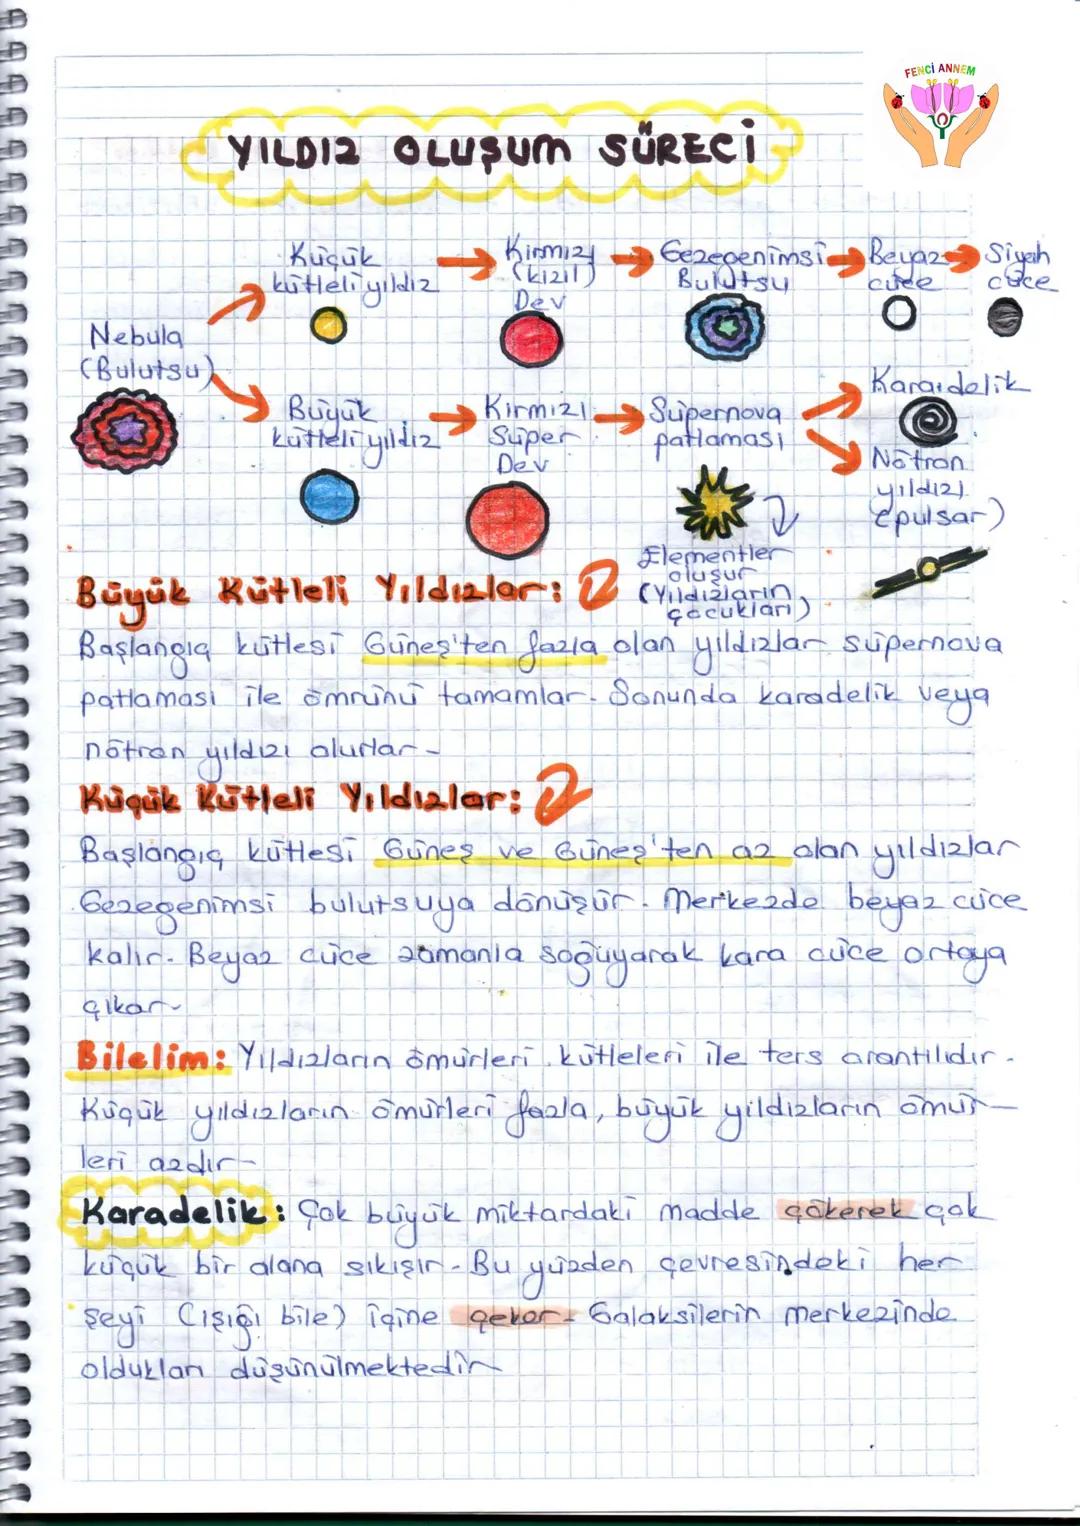 FENCİ ANNEM
YILDIZ OLUŞUM SÜRECİ
Küçük
kütleli yıldız
Kırmızı
(kızıl)
Dev
Gezegenimsi
Bulutsu
Beyaz
cüce
Siyah
cüce
Nebula
(Bulutsu)
Büyük
kütleli yıldız
Kırmızı
Süper
Dev
Süpernova
patlaması
Karadelik
Nötron
yıldızı
(pulsar)
Elementler
oluşur
(Yıldızların
çocukları)
Büyük Kütleli Yıldızlar:
Başlangıç kütlesi Güneş'ten fazla olan yıldızlar süpernova
patlaması ile ömrünü tamamlar. Sonunda karadelik veya
nötron yıldızı olurlar.
Küçük Kütleli Yıldızlar:
Başlangıç kütlesi Güneş ve Güneş'ten az olan yıldızlar
Gezegenimsi bulutsuya dönüşür. Merkezde beyaz cüce
kalır. Beyaz cüce zamanla soğuyarak kara cüce ortaya
çıkar.
Bilelim: Yıldızların ömürleri kütleleri ile ters orantılıdır.
Küçük yıldızların ömürleri fazla, büyük yıldızların ömür-
leri azdır.
Karadelik: Çok büyük miktardaki madde çökerek çok
küçük bir alana sıkışır. Bu yüzden çevresindeki her
şeyi (ışığı bile) içine çeker. Galaksilerin merkezinde
oldukları düşünülmektedir